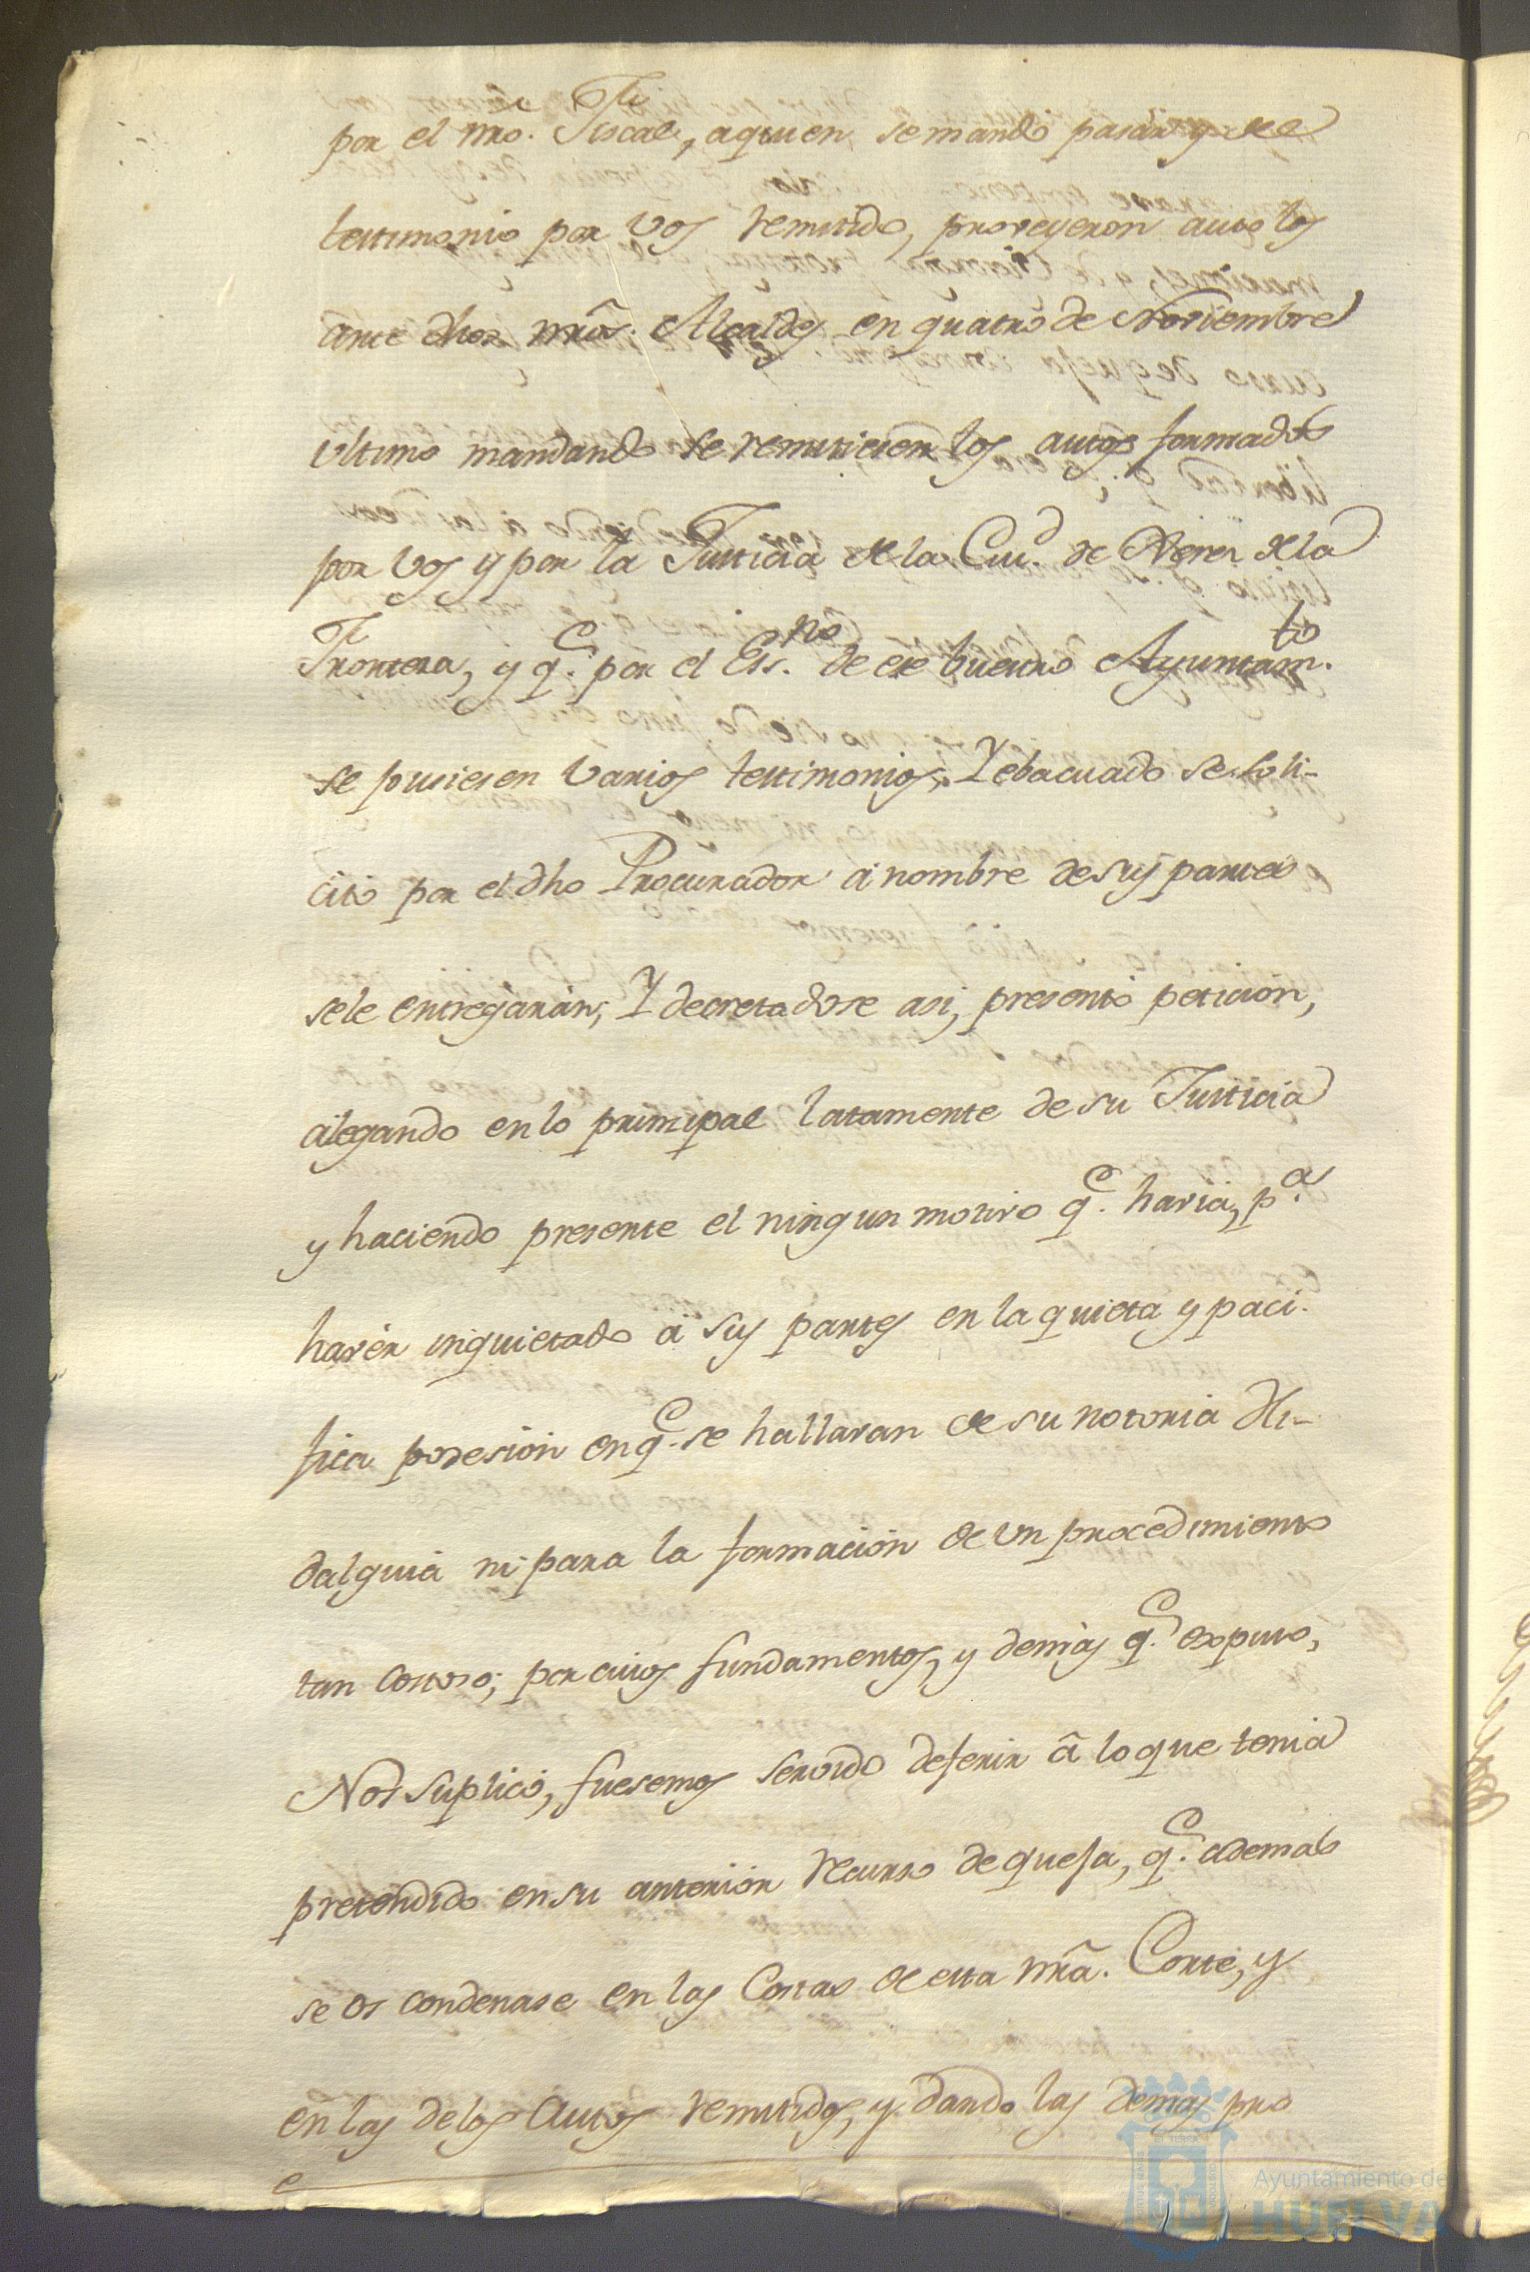 por el nro. Fiscal, aquien se mandó pasár y el
testimonio por Vos remitido, proveyeron auto los
ante dhos nrõs. Alcaldes en quatro de Noviembre
ultimo mandando se remitiesen los autos formados
por Vos y por la Justicia de la Ciud. de Xerez de la
Frontera, y qe. por el Essno. de ese buestro Ayuntamto.
se pusiesen varios testimonios; Y ebacuado se soli-
citó por el dho Procurador á nombre de sus partes
sele entregáran; Y decretadose asi, presentó petición,
alegando en lo principal latamente de su Justicia
y haciendo presente el ningun motivo qe. havia, pa.
havér inquietado á sus partes en la quieta y paci-
fica posesión en qe. se hallavan de su notoria Hi-
dalguia ni para la formación de un procedimiento
tan costoso; por cuios fundamentos, y demás qe. expuso,
Nos suplicó, fuesemos servido deferir á lo que tenia
pretendido en su anteriór recurso de queja, qe. ademas
se os condenase en las Costas de esta nrã. Corte, y
en las de los Autos remitidos, y dando las demas pro
Ayuntamiento de
HUELVA